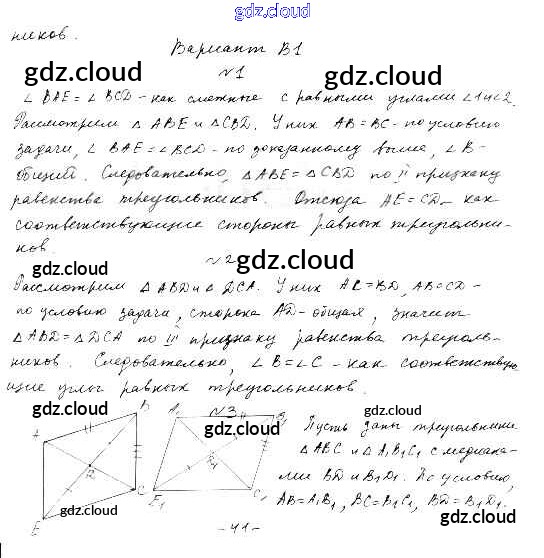 gdz.cloud
ников.
Вариант В1
gdz.cloud gdz.cloud
№1
∠ BAE = ∠ BCD - как смежные с равными углами ∠1 и ∠2.
Рассмотрим △ ABE и △ CBD. У них AB = BC - по условию
задачи, ∠ BAE = ∠ BCD - по доказанному выше, ∠ B -
общий. Следовательно, △ ABE = △ CBD по II признаку
равенства треугольников. Отсюда AE = CD - как
соответствующие стороны равных треугольни-
ков.
gdz.cloud №2 gdz.cloud
Рассмотрим △ ABD и △ DCA. У них AC = BD, AB = CD -
по условию задачи, сторона AD - общая, значит
△ ABD = △ DCA по III признаку равенства треуголь-
ников. Следовательно, ∠ B = ∠ C - как соответствую-
щие углы равных треугольников.
gdz.cloud №3 gdz.cloud gdz.cloud
A B C E
A₁ B₁ C₁ E₁
Пусть даны треугольники
△ ABC и △ A₁B₁C₁ с медиана-
ми BD и B₁D₁. По условию,
AB = A₁B₁, BC = B₁C₁, BD = B₁D₁.
- 41 -
gdz.cloud gdz.cloud gdz.cloud